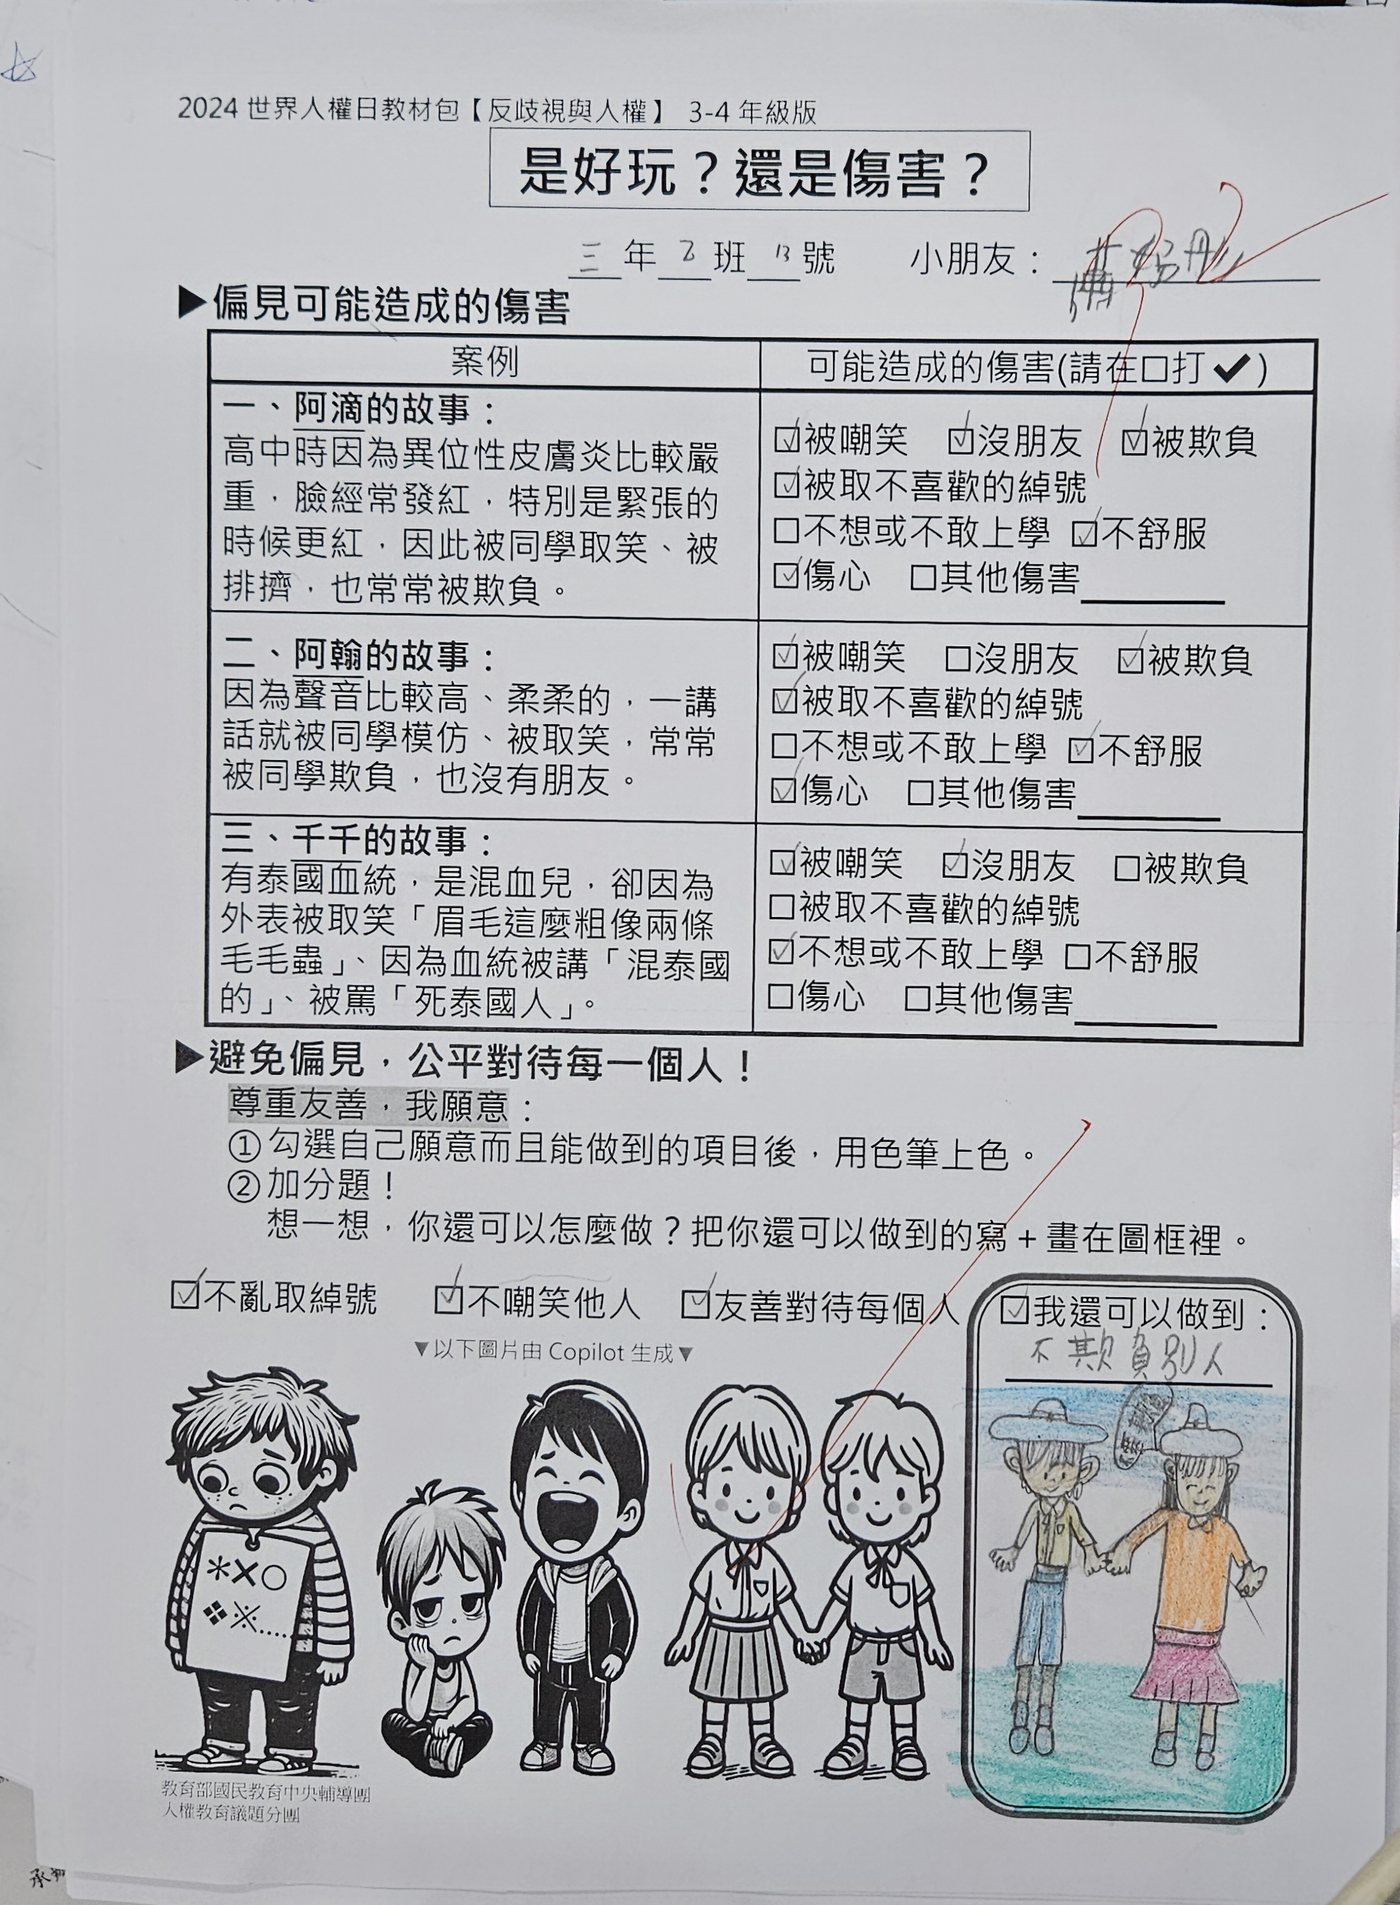 2024 世界人權日教材包【反歧視與人權】 3-4 年級版
是好玩？還是傷害？
三年2班13號 小朋友：
▶偏見可能造成的傷害
案例
可能造成的傷害(請在□打✔)
一、阿滴的故事：
高中時因為異位性皮膚炎比較嚴
重，臉經常發紅，特別是緊張的
時候更紅，因此被同學取笑、被
排擠，也常常被欺負。
☑被嘲笑 ☑沒朋友 ☑被欺負
☑被取不喜歡的綽號
□不想或不敢上學 ☑不舒服
☑傷心 □其他傷害
二、阿翰的故事：
因為聲音比較高、柔柔的，一講
話就被同學模仿、被取笑，常常
被同學欺負，也沒有朋友。
☑被嘲笑 □沒朋友 ☑被欺負
☑被取不喜歡的綽號
□不想或不敢上學 ☑不舒服
☑傷心 □其他傷害
三、千千的故事：
有泰國血統，是混血兒，卻因為
外表被取笑「眉毛這麼粗像兩條
毛毛蟲」、因為血統被講「混泰國
的」、被罵「死泰國人」。
☑被嘲笑 ☑沒朋友 □被欺負
□被取不喜歡的綽號
☑不想或不敢上學 □不舒服
□傷心 □其他傷害
▶避免偏見，公平對待每一個人！
尊重友善，我願意：
①勾選自己願意而且能做到的項目後，用色筆上色。
②加分題！
想一想，你還可以怎麼做？把你還可以做到的寫+畫在圖框裡。
☑不亂取綽號 ☑不嘲笑他人 ☑友善對待每個人 ☑我還可以做到：
不欺負別人
▼以下圖片由 Copilot 生成▼
教育部國民教育中央輔導團
人權教育議題分團